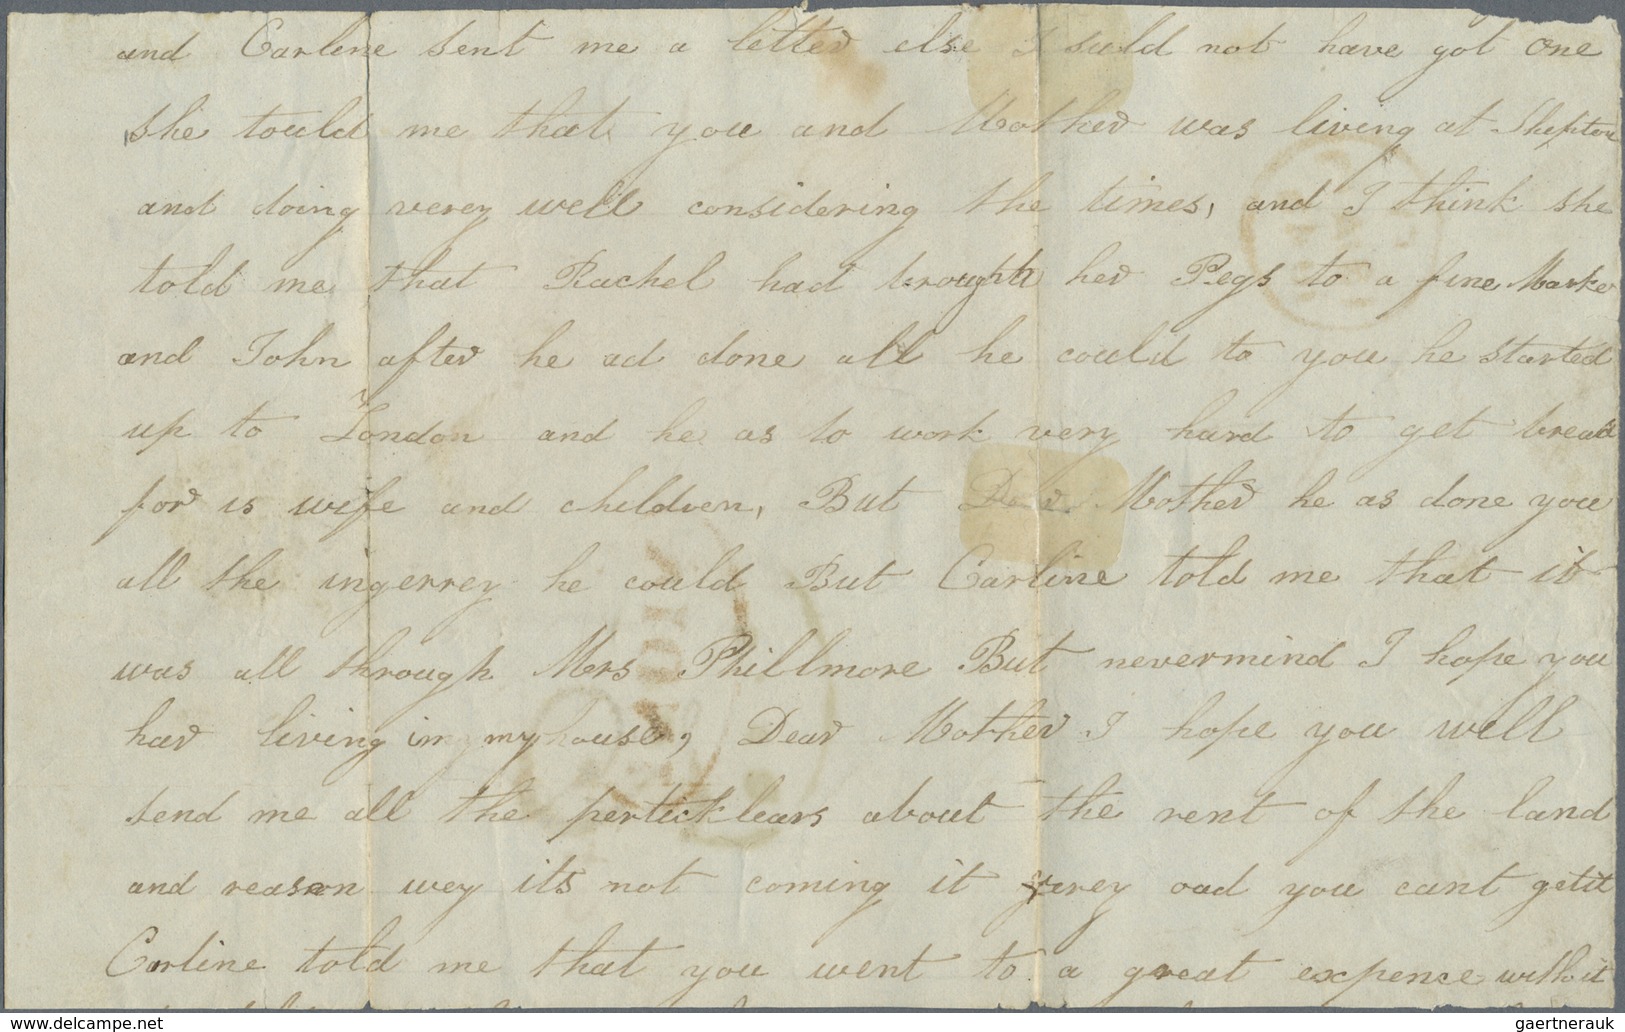 and Carline sent me a letter else I suld not have got one
she tould me that you and Mother was living at Shepton
and doing verey well considering the times, and I think she
told me that Rachel had brought her Pegs to a fine Marke
and John after he ad done all he could to you he started
up to London and he as to work very hard to get bread
for is wife and children, But Dear Mother he as done you
all the ingerrey he could But Carline told me that it
was all through Mrs Phillmore But nevermind I hope you
har living in my house, Dear Mother I hope you well
send me all the perticklears about the rent of the land
and reason wey its not coming it verey oad you cant getit
Carline told me that you went to a great expence with it
www.delcampe.net
gaertnerauk